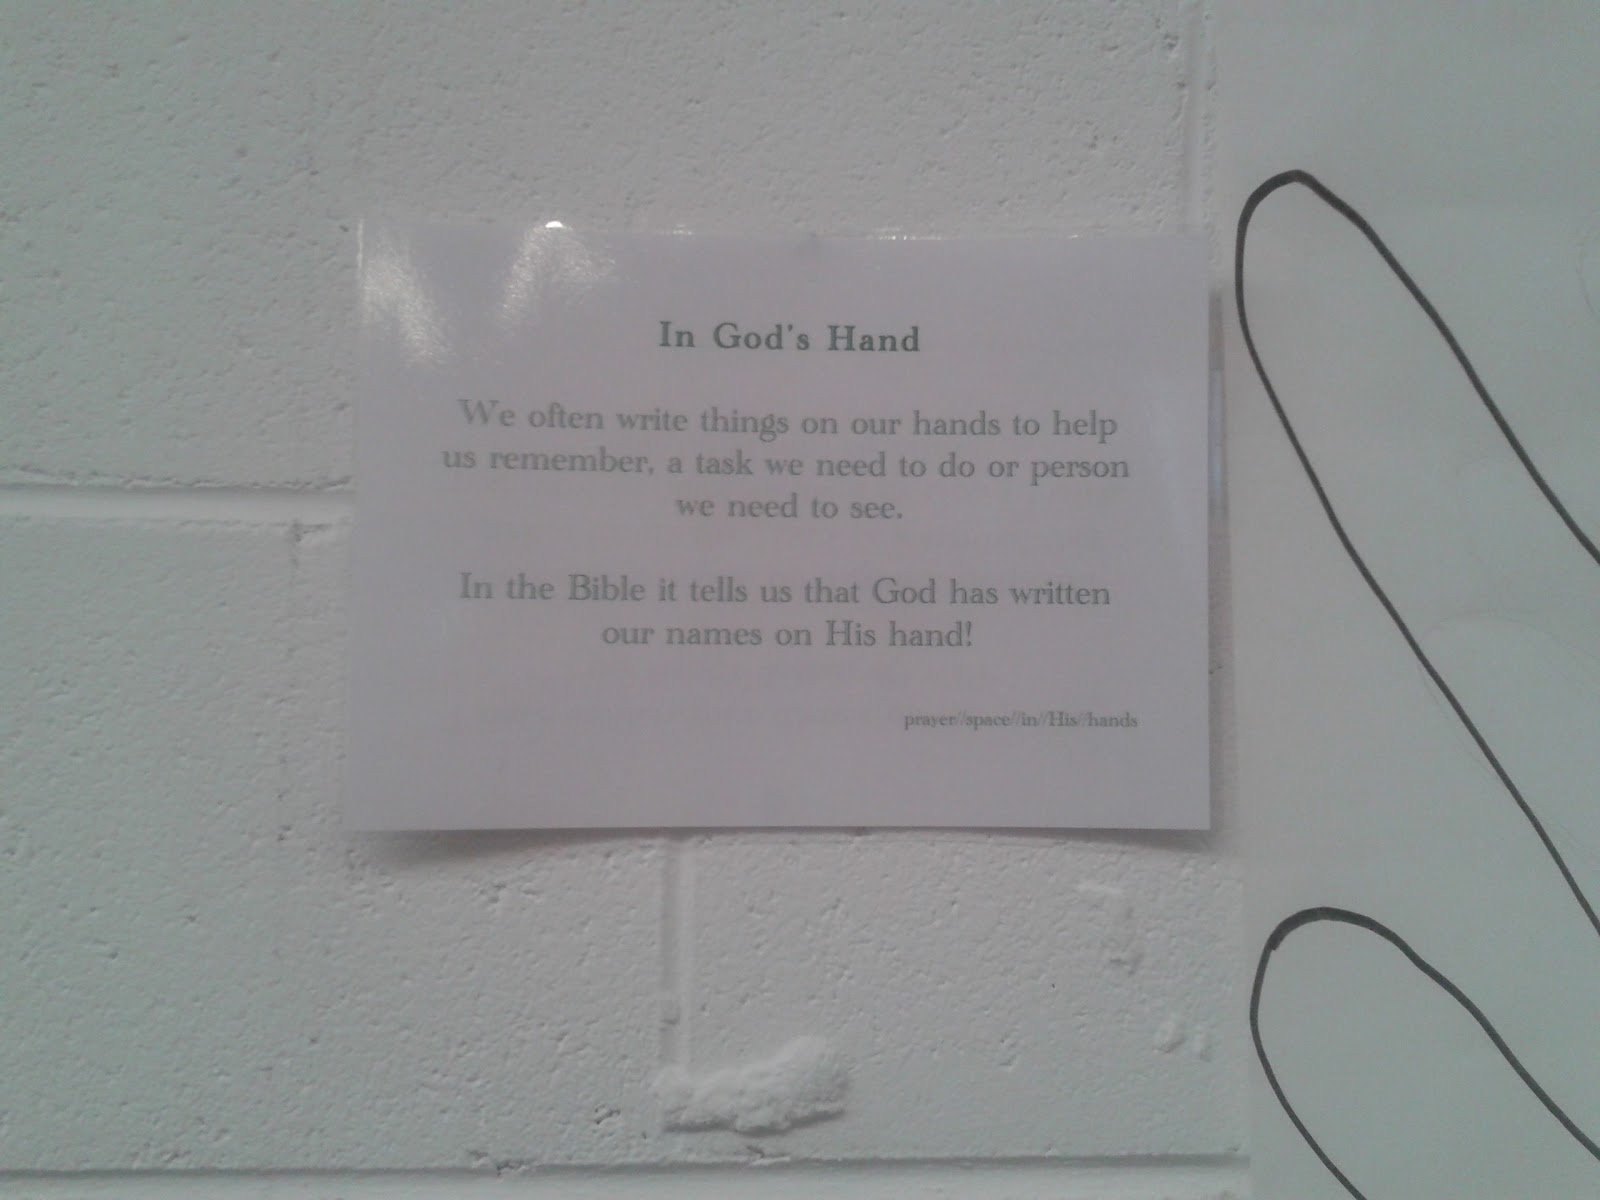 In God's Hand
We often write things on our hands to help
us remember, a task we need to do or person
we need to see.
In the Bible it tells us that God has written
our names on His hand!
prayer//space//in//His//hands